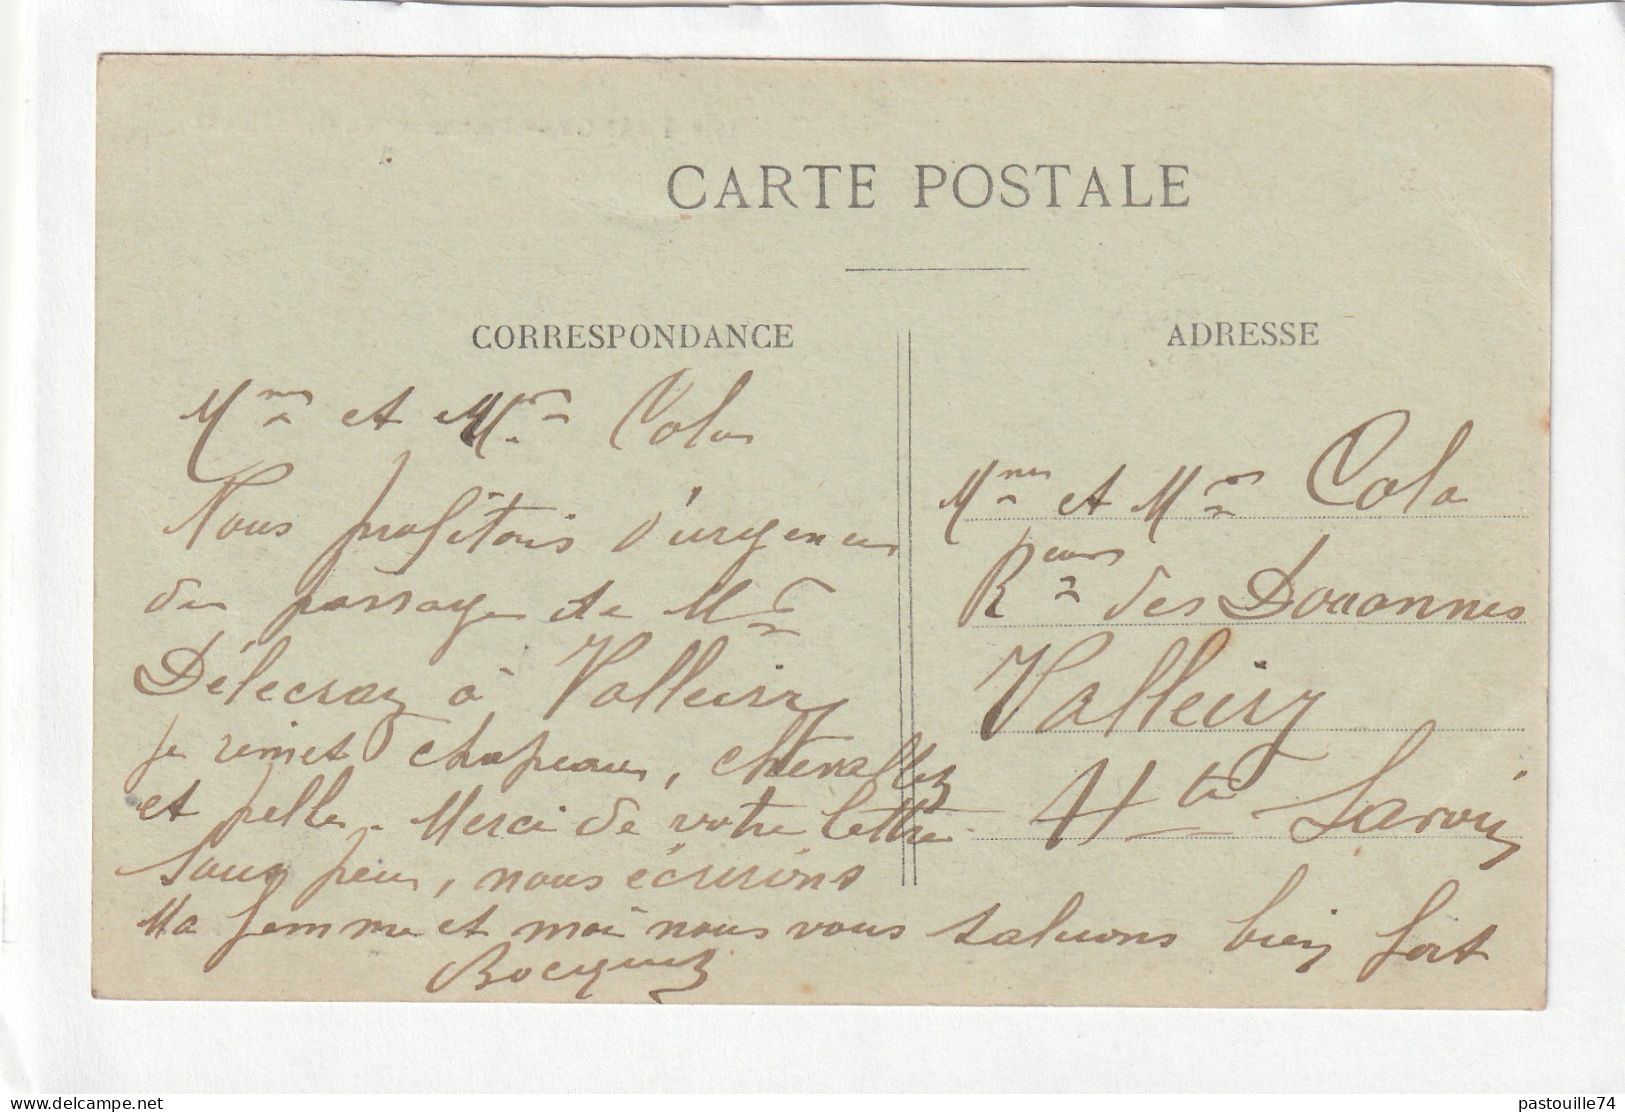 CARTE POSTALE
CORRESPONDANCE
ADRESSE
Mme et Mr Cola
Nous profitons d'urgence
du passage de Mr
Délecraz à Valleiry
je remet chapeau, chevallez
et pelle. Merci de votre lettre
Sous peu, nous écrirons
Ma femme et moi nous vous saluons bien fort
Bocquez
Mme et Mr Cola
Rceur des Douannes
Valleiry
Hte Savoie
pastouille74